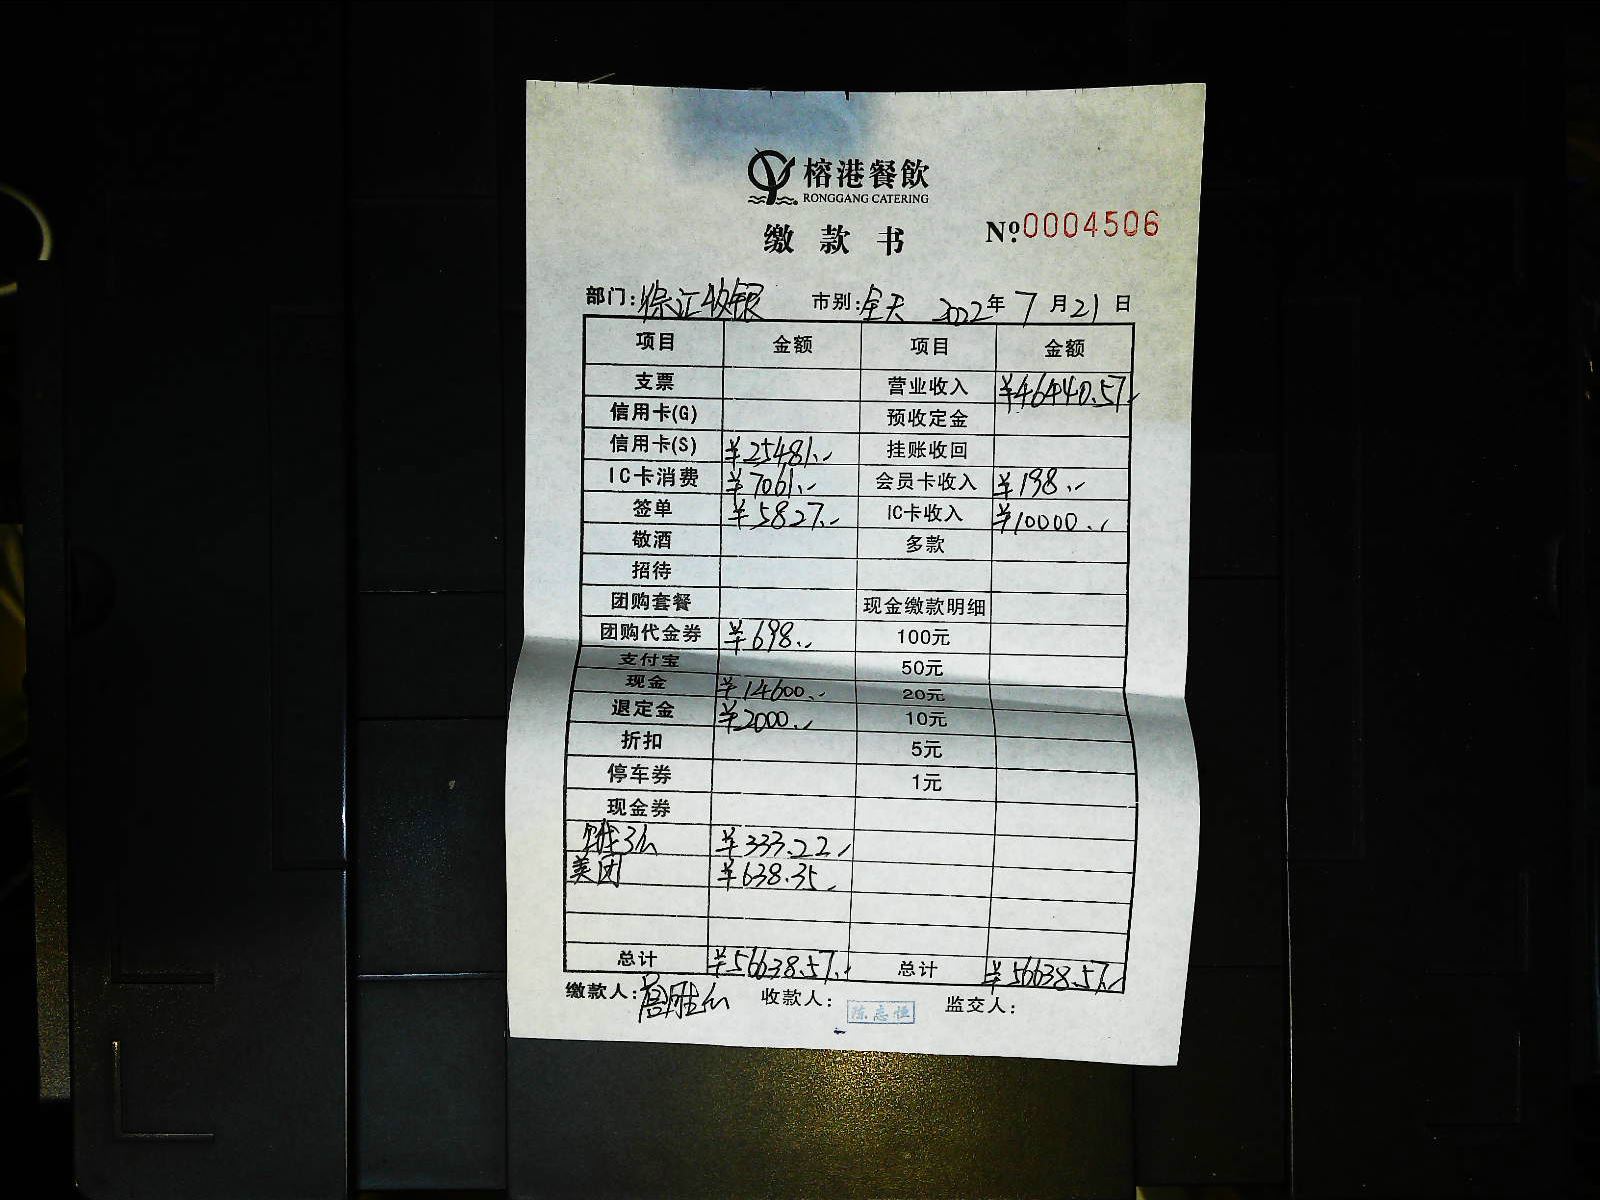 榕港餐飲
RONGGANG CATERING
缴款书 Nº.0004506
部门:徐汇收银 市别:全天 2022年7月21日
项目 金额 项目 金额
支票 营业收入 ¥46440.57
信用卡(G) 预收定金
信用卡(S) ¥25481.- 挂账收回
IC卡消费 ¥7061.- 会员卡收入 ¥198.-
签单 ¥5827.- IC卡收入 ¥10000.-
敬酒 多款
招待
团购套餐 现金缴款明细
团购代金券 ¥698.- 100元
支付宝 50元
现金 ¥14600.- 20元
退定金 ¥2000.- 10元
折扣 5元
停车券 1元
现金券
¥333.22
美团 ¥638.35
总计 ¥56638.57 总计 ¥56638.57
缴款人: 收款人:陈志恒 监交人: